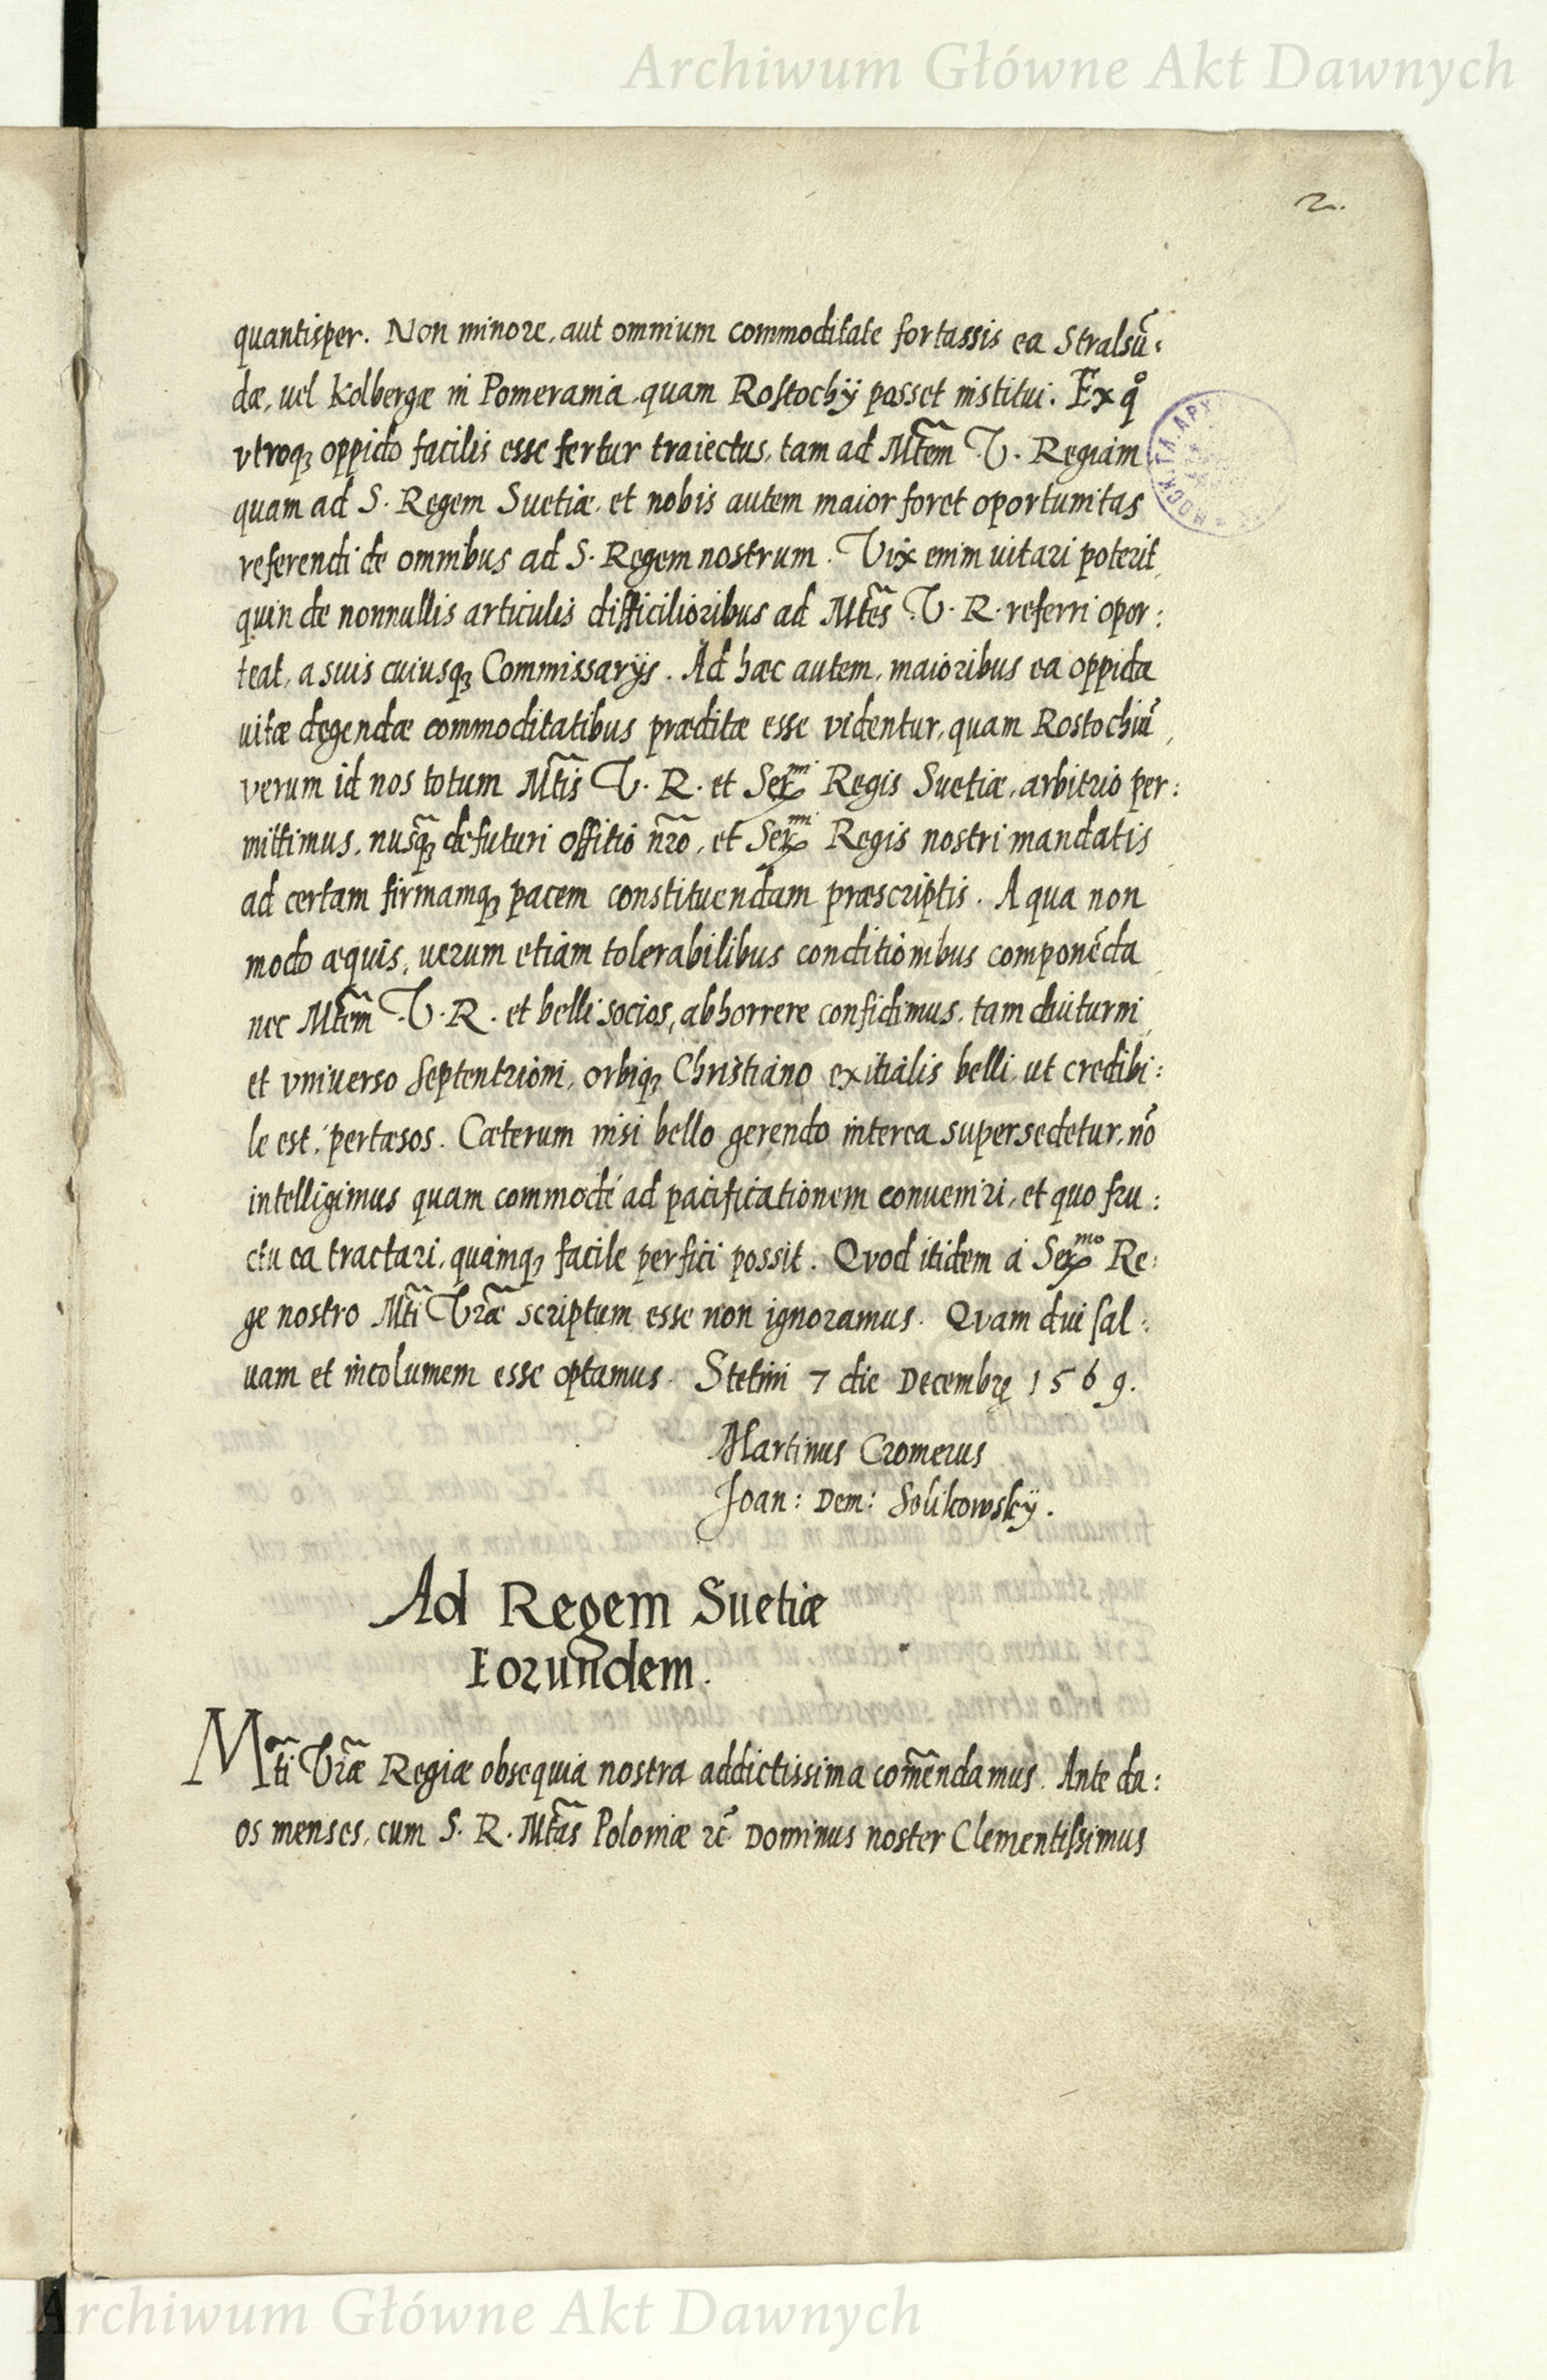 Archiwum Główne Akt Dawnych
2.
quantisper. Non minore, aut omnium commoditate fortassis ea Stralsũ:
dæ, uel Kolbergæ in Pomerania, quam Rostochÿ posset institui. Ex q̊
vtroqꝫ oppido facilis esse fertur traiectus, tam ad Mt̃em V. Regiam
quam ad S. Regem Suetiæ, et nobis autem maior foret oportunitas
referendi de omnibus ad S. Regem nostrum. Vix enim uitari poterit,
quin de nonnullis articulis difficilioribus ad Mt̃es V. R. referri opor:
teat, a suis cuiusqꝫ Commissarÿs. Ad hæc autem, maioribus ea oppida
uitæ degendæ commoditatibus præditæ esse videntur, quam Rostochiũ,
verum id nos totum Mt̃is V. R. et Ser^mi Regis Suetiæ, arbitrio per:
mittimus, nusq̃ꝫ defuturi offitio nr̃o, et Ser^mi Regis nostri mandatis
ad certam firmamqꝫ pacem constituendam præscriptis. A qua non
modo æquis, uerum etiam tolerabilibus conditionibus componẽda
nec Mt̃em V. R. et belli socios, abhorrere confidimus, tam diuturni
et vniuerso Septentrioni, orbiqꝫ Christiano exitialis belli, ut credibi:
le est, pertæsos. Cæterum nisi bello gerendo interea supersedetur, nõ
intelligimus quam commodè ad pacificationem conueniri, et quo fru:
ctu ea tractari, quamqꝫ facile perfici possit. Qvod itidem à Ser^mo Re:
ge nostro Mt̃i Vræ̃ scriptum esse non ignoramus. Qvam diu sal:
uam et incolumem esse optamus. Stetini 7 die Decembrę 1569.
Martinus Cromerus
Joan: Dem: Solikowskÿ.
Ad Regem Suetiæ
Eorundem.
Mt̃i Vræ̃ Regiæ obsequia nostra addictissima com̃endamus. Ante du:
os menses, cum S. R. Mt̃as Poloniæ ⁊c̃ Dominus noster Clementissimus
Archiwum Główne Akt Dawnych